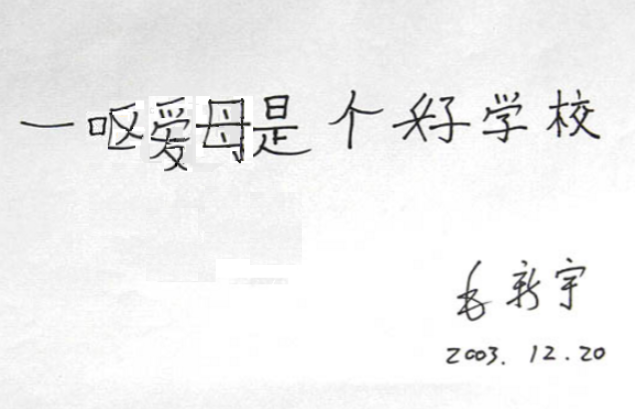 一呕爱母是个好学校
毛新宇
2003.12.20